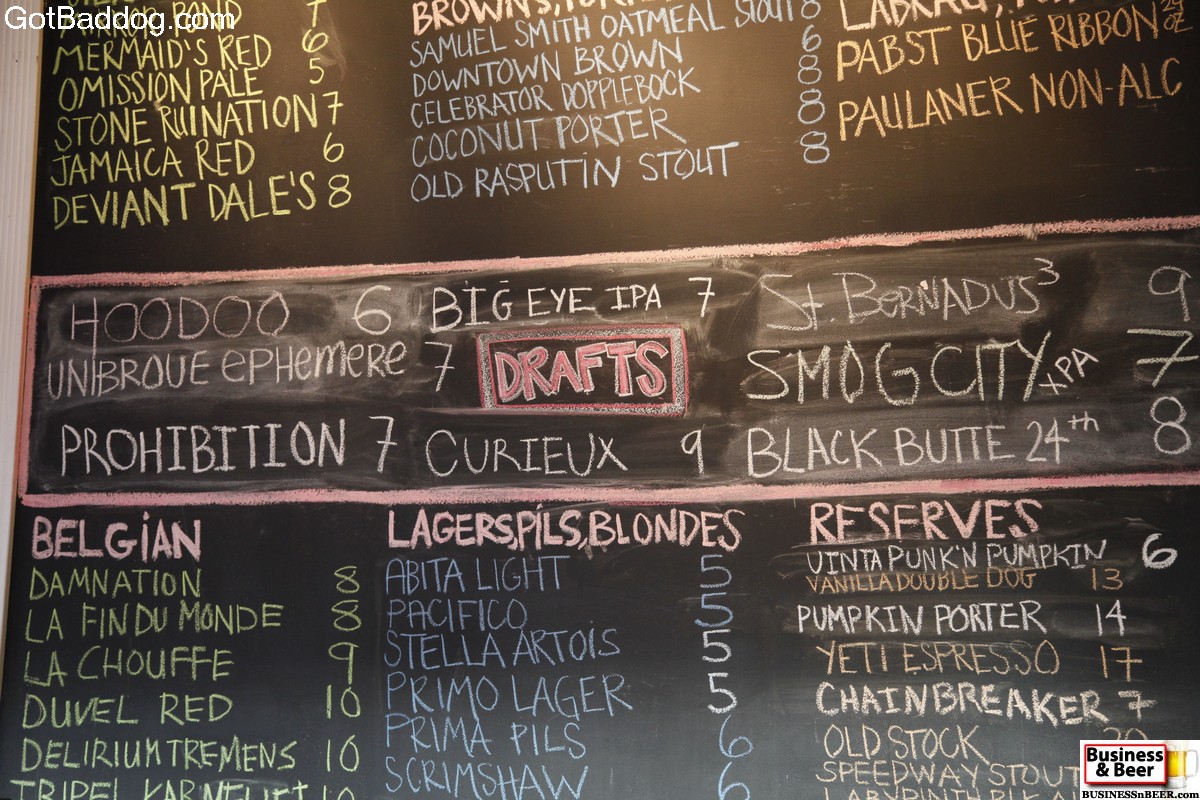 GotBaddog.com
MERMAID'S RED 6
OMISSION PALE 5
STONE RUINATION 7
JAMAICA RED 6
DEVIANT DALE'S 8
SAMUEL SMITH OATMEAL STOUT 8
DOWNTOWN BROWN 6
CELEBRATOR DOPPLEBOCK 8
COCONUT PORTER 8
OLD RASPUTIN STOUT 8
PABST BLUE RIBBON 24 OZ
PAULANER NON-ALC
HOODOO 6
UNIBROUE EPHEMERE 7
PROHIBITION 7
BIG EYE IPA 7
DRAFTS
CURIEUX 9
ST. BERNADUS 3 9
SMOG CITY XPA 7
BLACK BUTTE 24th 8
BELGIAN
DAMNATION 8
LA FIN DU MONDE 8
LA CHOUFFE 9
DUVEL RED 10
DELIRIUM TREMENS 10
TRIPEL KARMELIET 10
LAGERS, PILS, BLONDES
ABITA LIGHT 5
PACIFICO 5
STELLA ARTOIS 5
PRIMO LAGER 5
PRIMA PILS 6
SCRIMSHAW 6
RESERVES
UINTA PUNK'N PUMPKIN 6
VANILLA DOUBLE DOG 13
PUMPKIN PORTER 14
YETI ESPRESSO 17
CHAINBREAKER 7
OLD STOCK 20
SPEEDWAY STOUT
Business
& Beer
BUSINESSnBEER.com